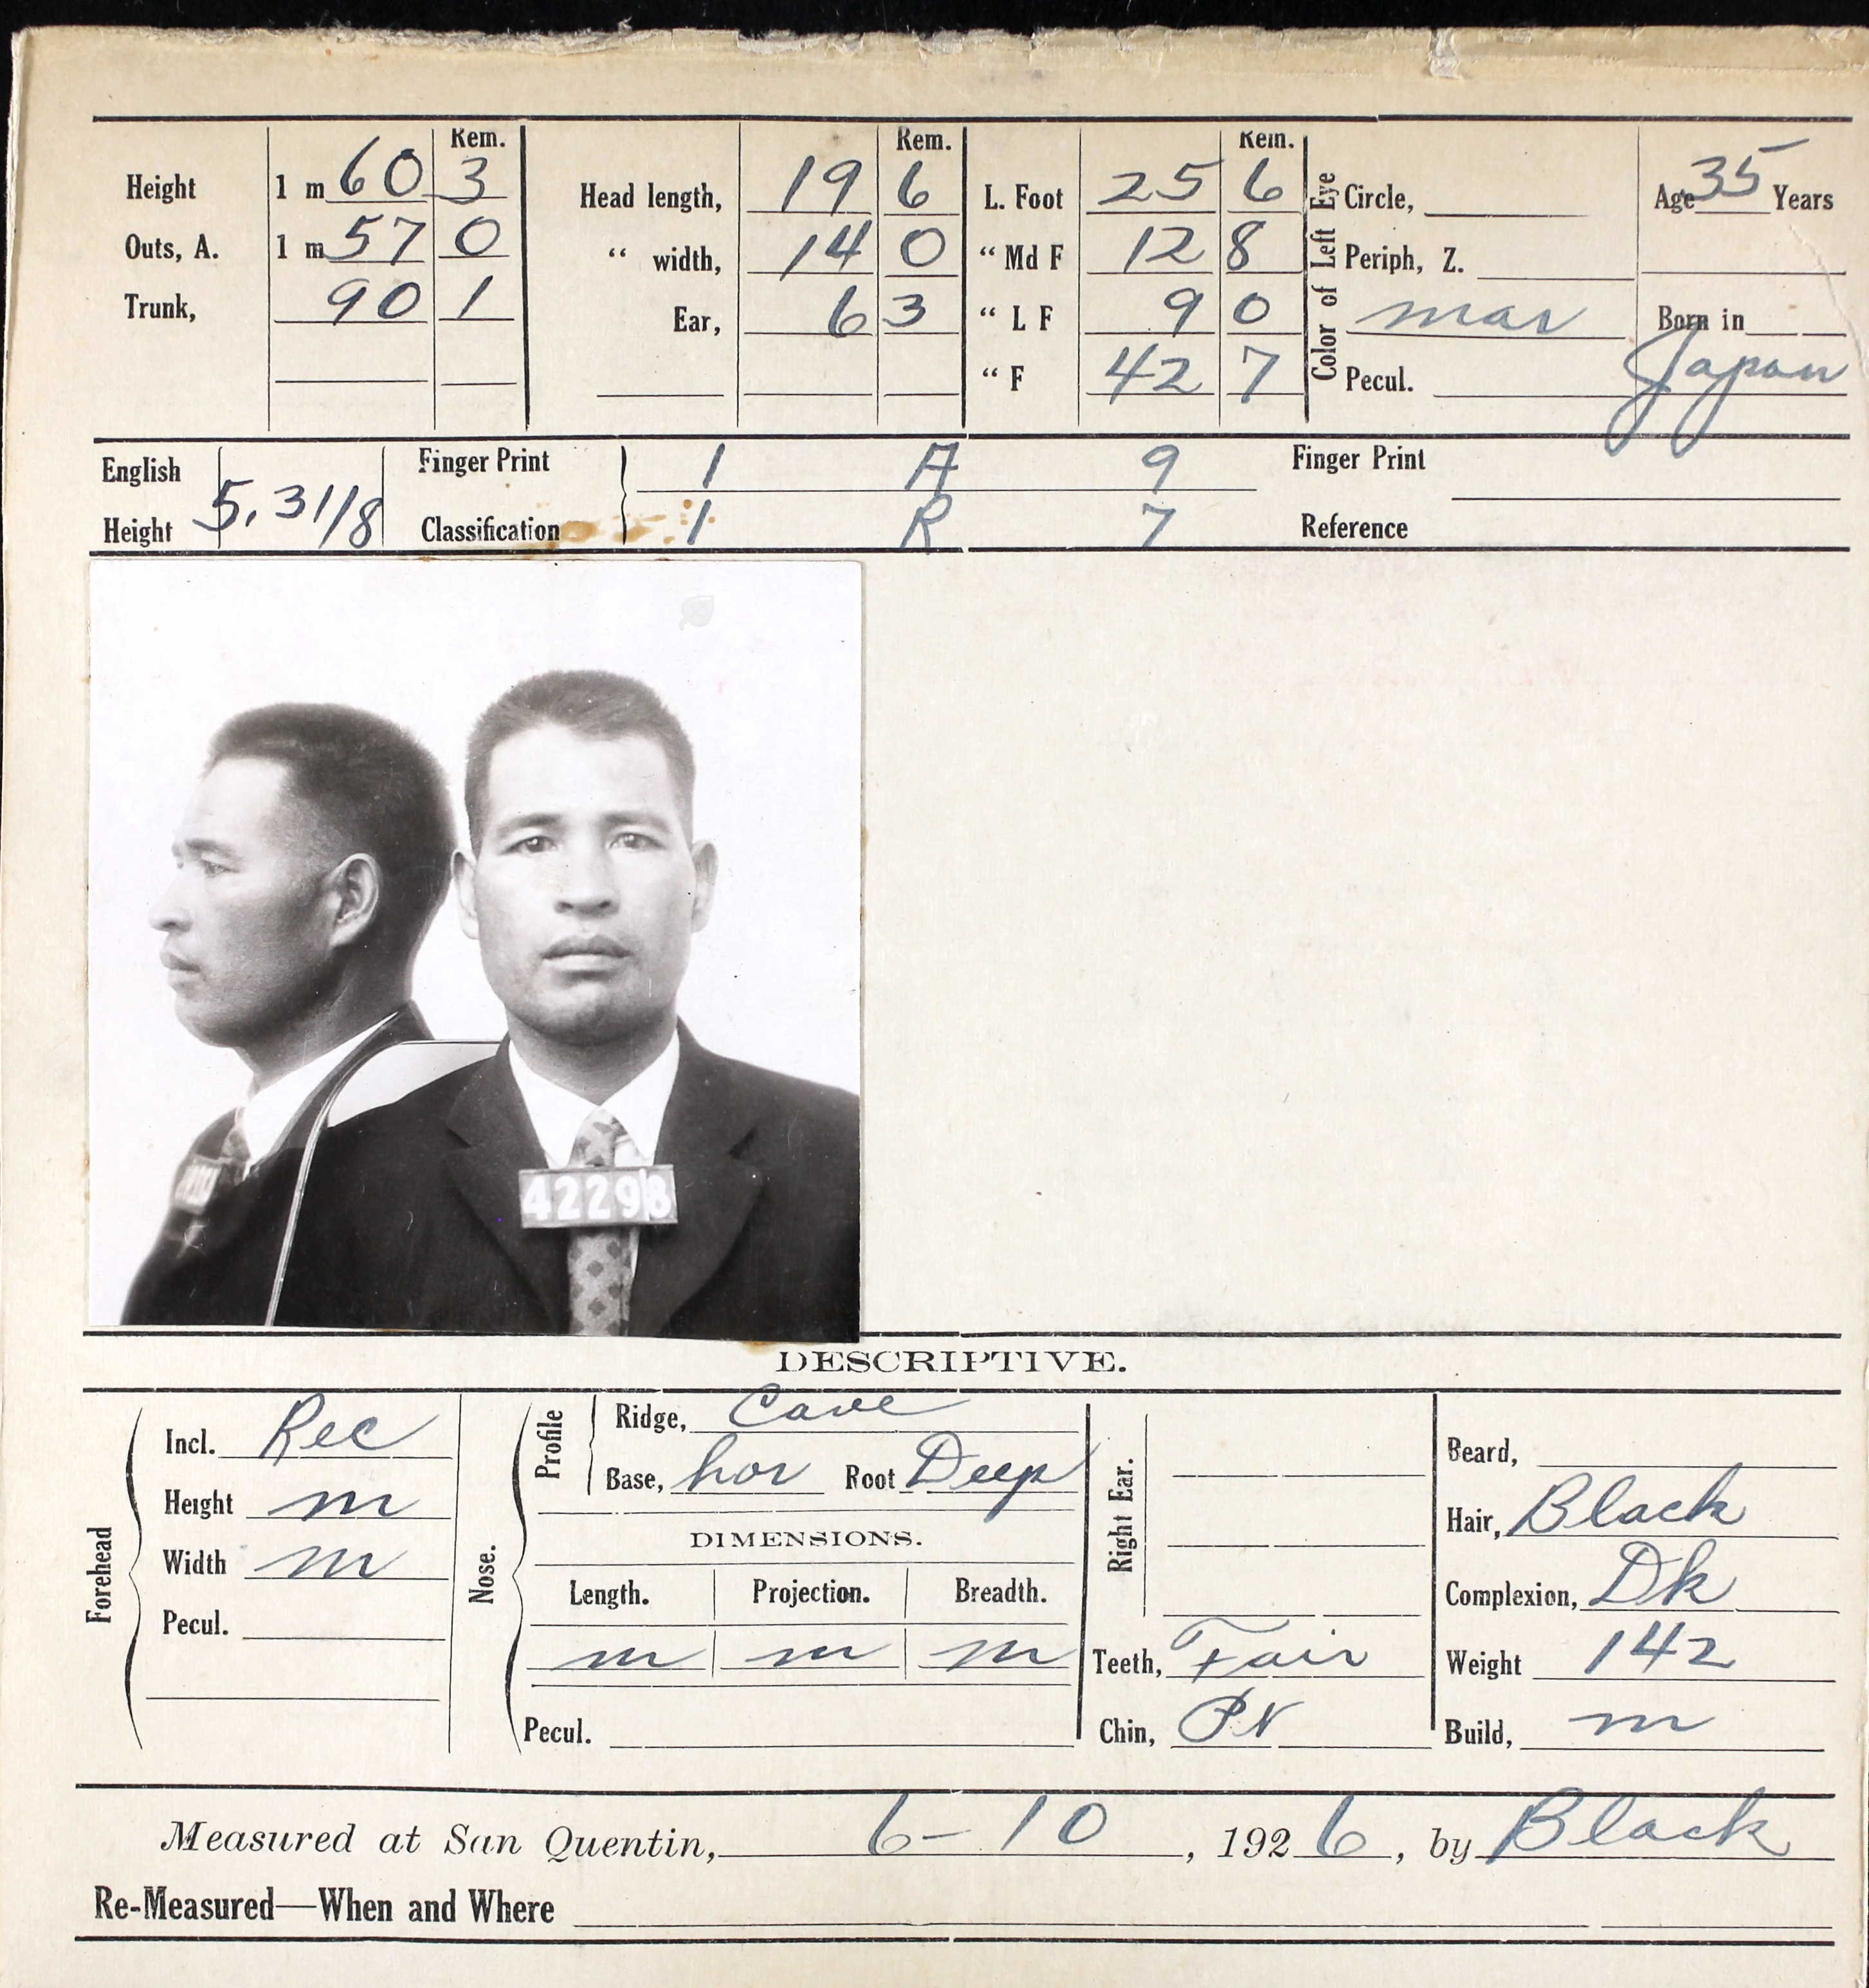 Rem. Rem. Rem.
Height 1 m 60 3 Head length, 19 6 L. Foot 25 6 Circle, Age 35 Years
Outs, A. 1 m 57 0 “ width, 14 0 “ Md F 12 8 Periph, Z.
Trunk, 90 1 Ear, 6 3 “ L F 9 0 mar Born in
“ F 42 7 Pecul. Japan
Color of Left Eye
English Finger Print 1 A 9 Finger Print
Height 5, 3 1/8 Classification 1 R 7 Reference
42298
DESCRIPTIVE.
Forehead
Incl. Rec
Height m
Width m
Pecul.
Nose.
Profile
Ridge, Cave
Base, hor Root Deep
DIMENSIONS.
Length. Projection. Breadth.
m m m
Pecul.
Right Ear.
Teeth, Fair
Chin, PN
Beard,
Hair, Black
Complexion, Dk
Weight 142
Build, m
Measured at San Quentin, 6-10, 1926, by Black
Re-Measured—When and Where